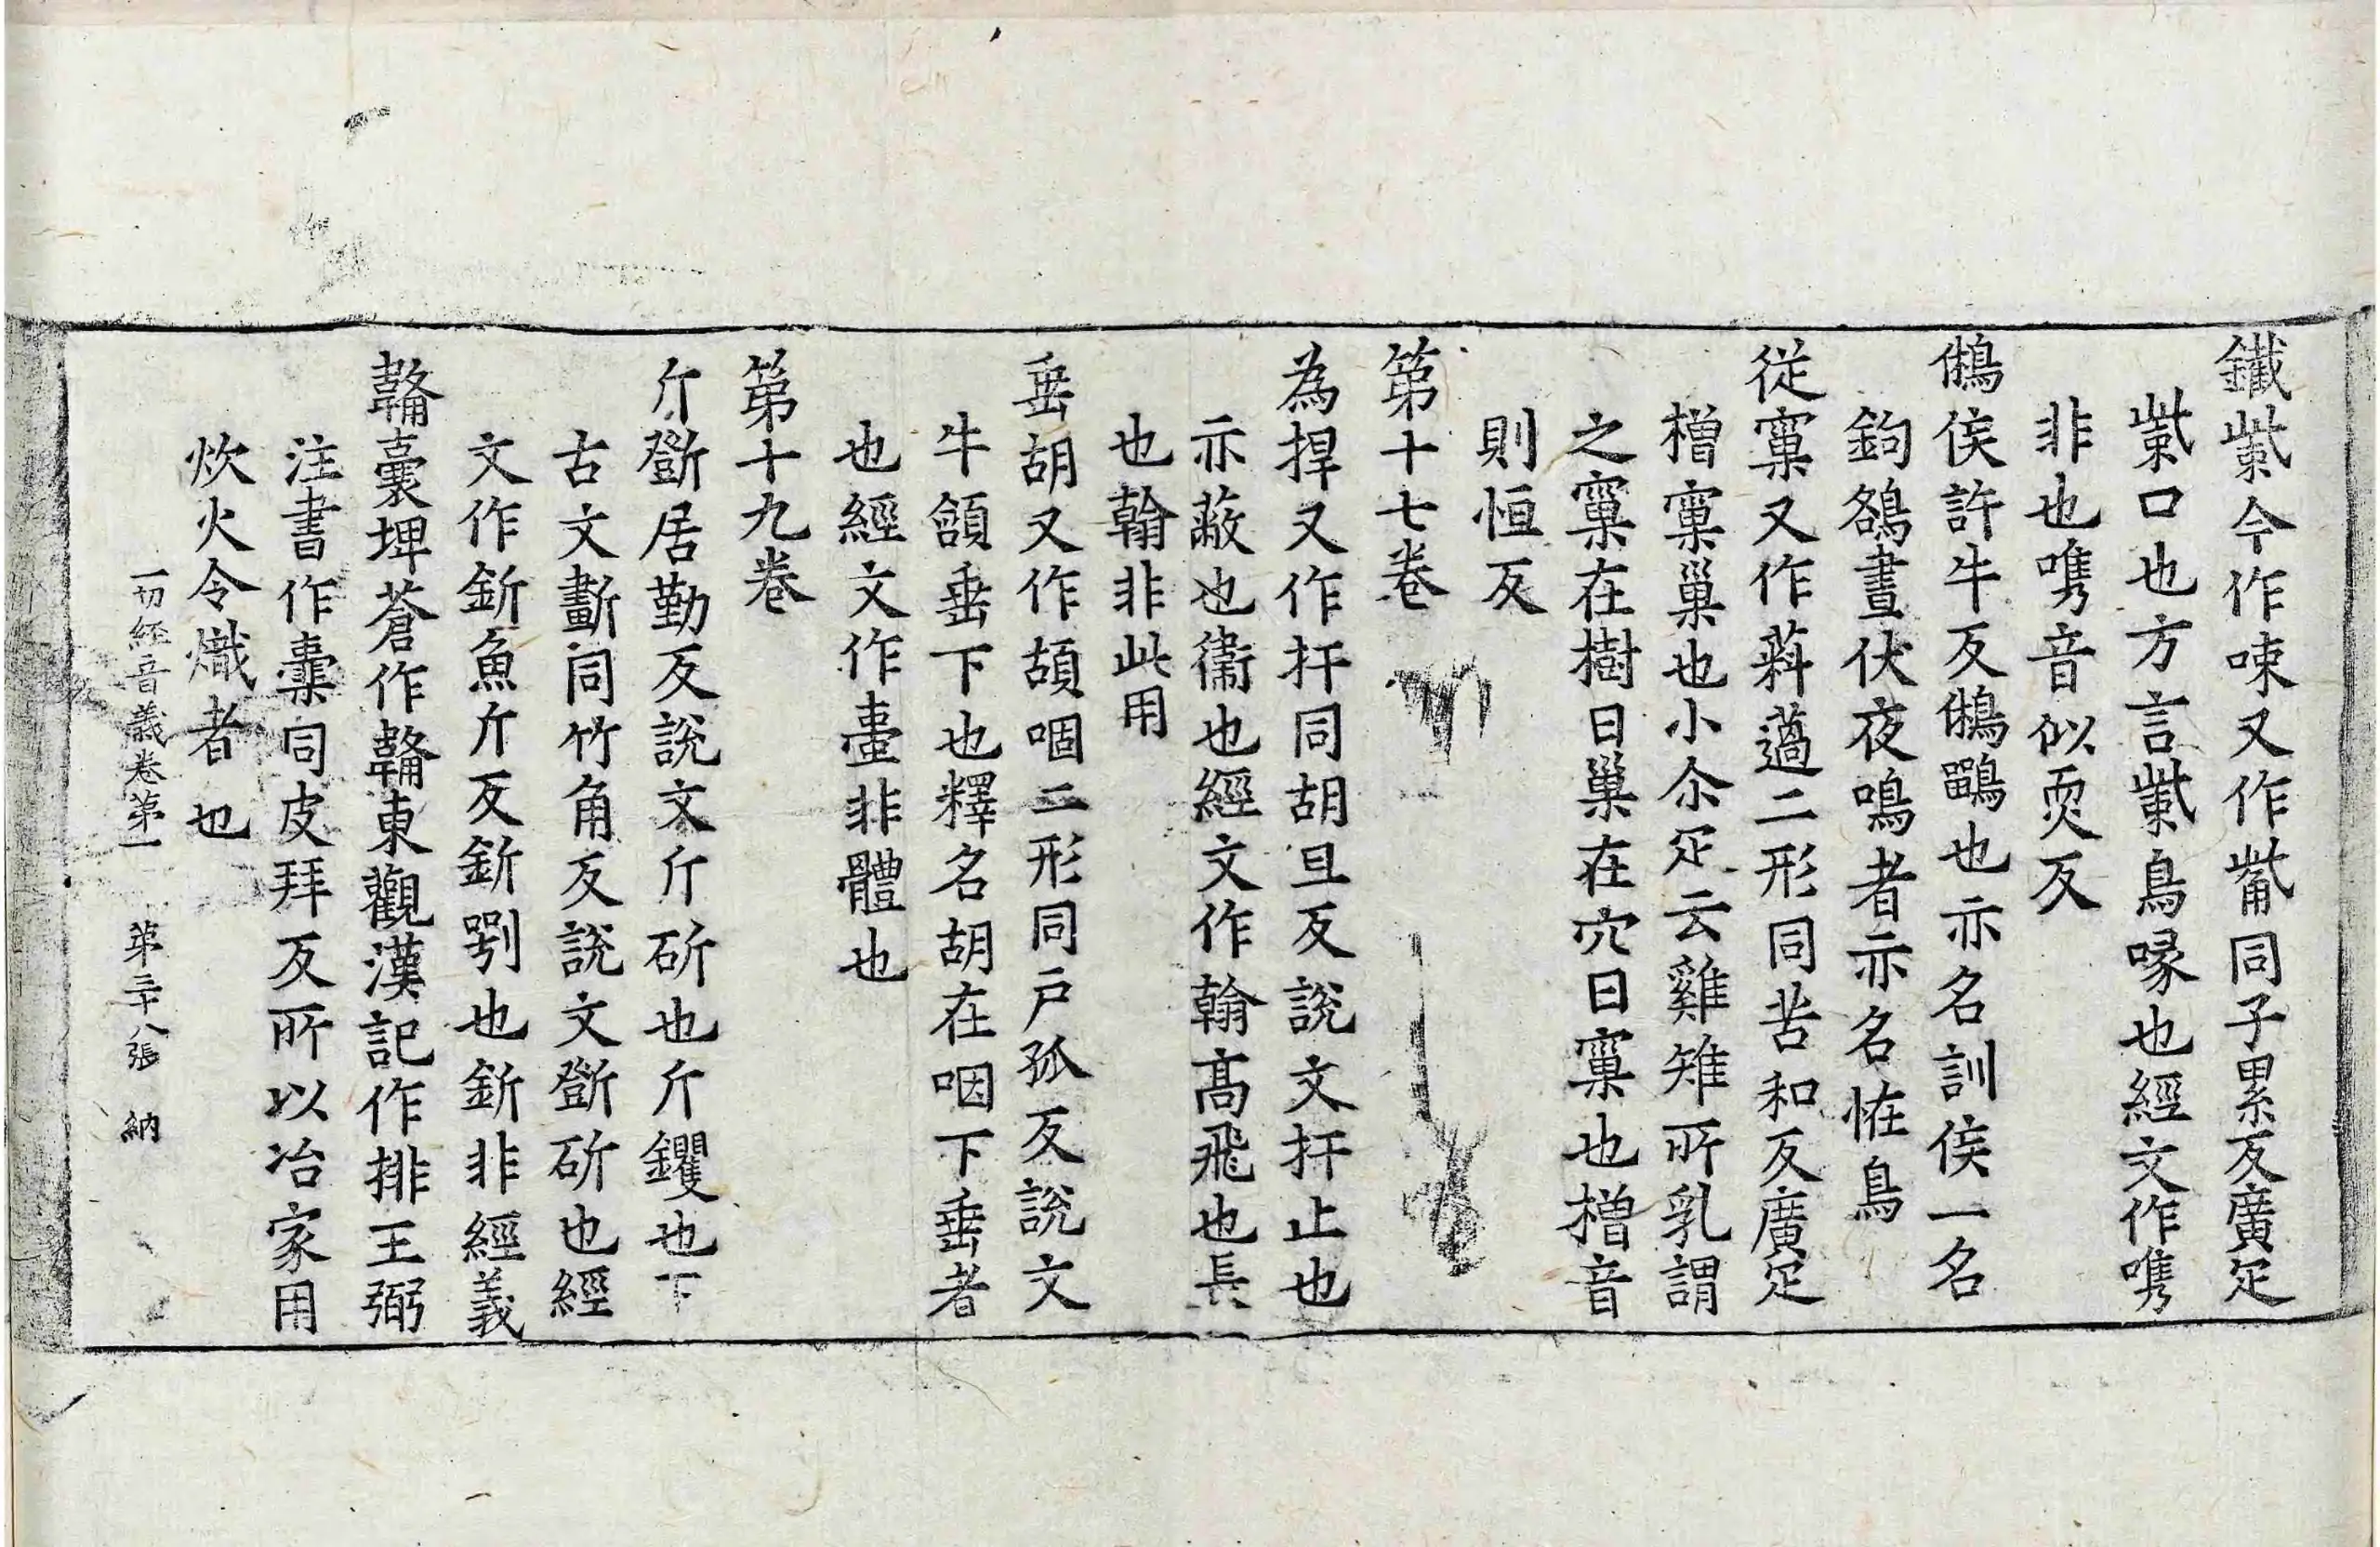 鐵㭰今作㖨又作觜同子累反廣疋
㭰口也方言㭰鳥喙也經文作嗺
非也嗺音似耎反
鵂侯許牛反鵂鶹也亦名訓侯一名
鉤鵅晝伏夜鳴者亦名恠鳥
從窠又作薪薖二形同苦和反廣疋
橧窠巢也小尒疋云雞雉所乳謂
之窠在樹曰巢在穴曰窠也橧音
則恒反
第十七卷
為捍又作扞同胡旦反說文扞止也
亦蔽也衞也經文作翰高飛也長
也翰非此用
垂胡又作頡咽二形同戶孤反說文
牛頷垂下也釋名胡在咽下垂者
也經文作壷非體也
第十九卷
斤斲居勤反說文斤斫也斤钁也下
古文斵同竹角反說文斲斫也經
文作釿魚斤反釿剬也釿非經義
韛囊埤蒼作韛東觀漢記作排王弼
注書作橐同皮拜反所以冶家用
炊火令熾者也
一切經音義卷第一 第二十八張 納